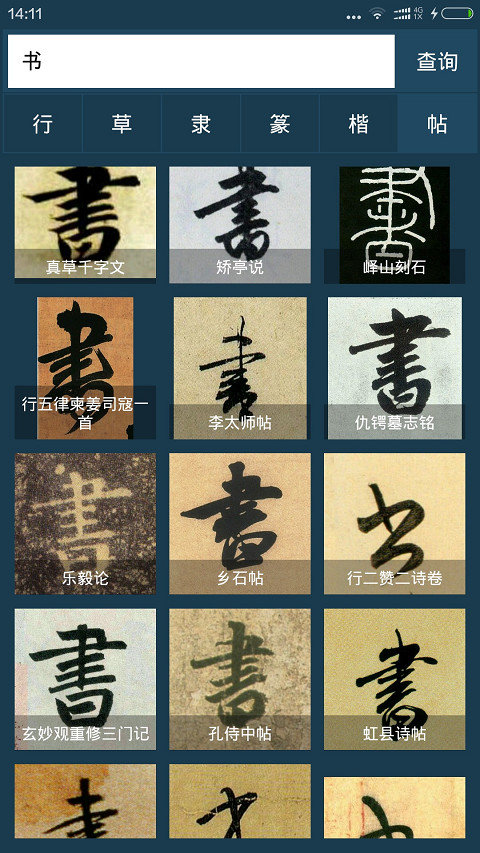 14:11
4G
1X
书
查询
行 草 隶 篆 楷 帖
書 書 書
真草千字文 矫亭说 峄山刻石
書 書 書
行五律柬姜司寇一
首 李太师帖 仇锷墓志铭
書 書 书
乐毅论 乡石帖 行二赞二诗卷
書 書 書
玄妙观重修三门记 孔侍中帖 虹县诗帖